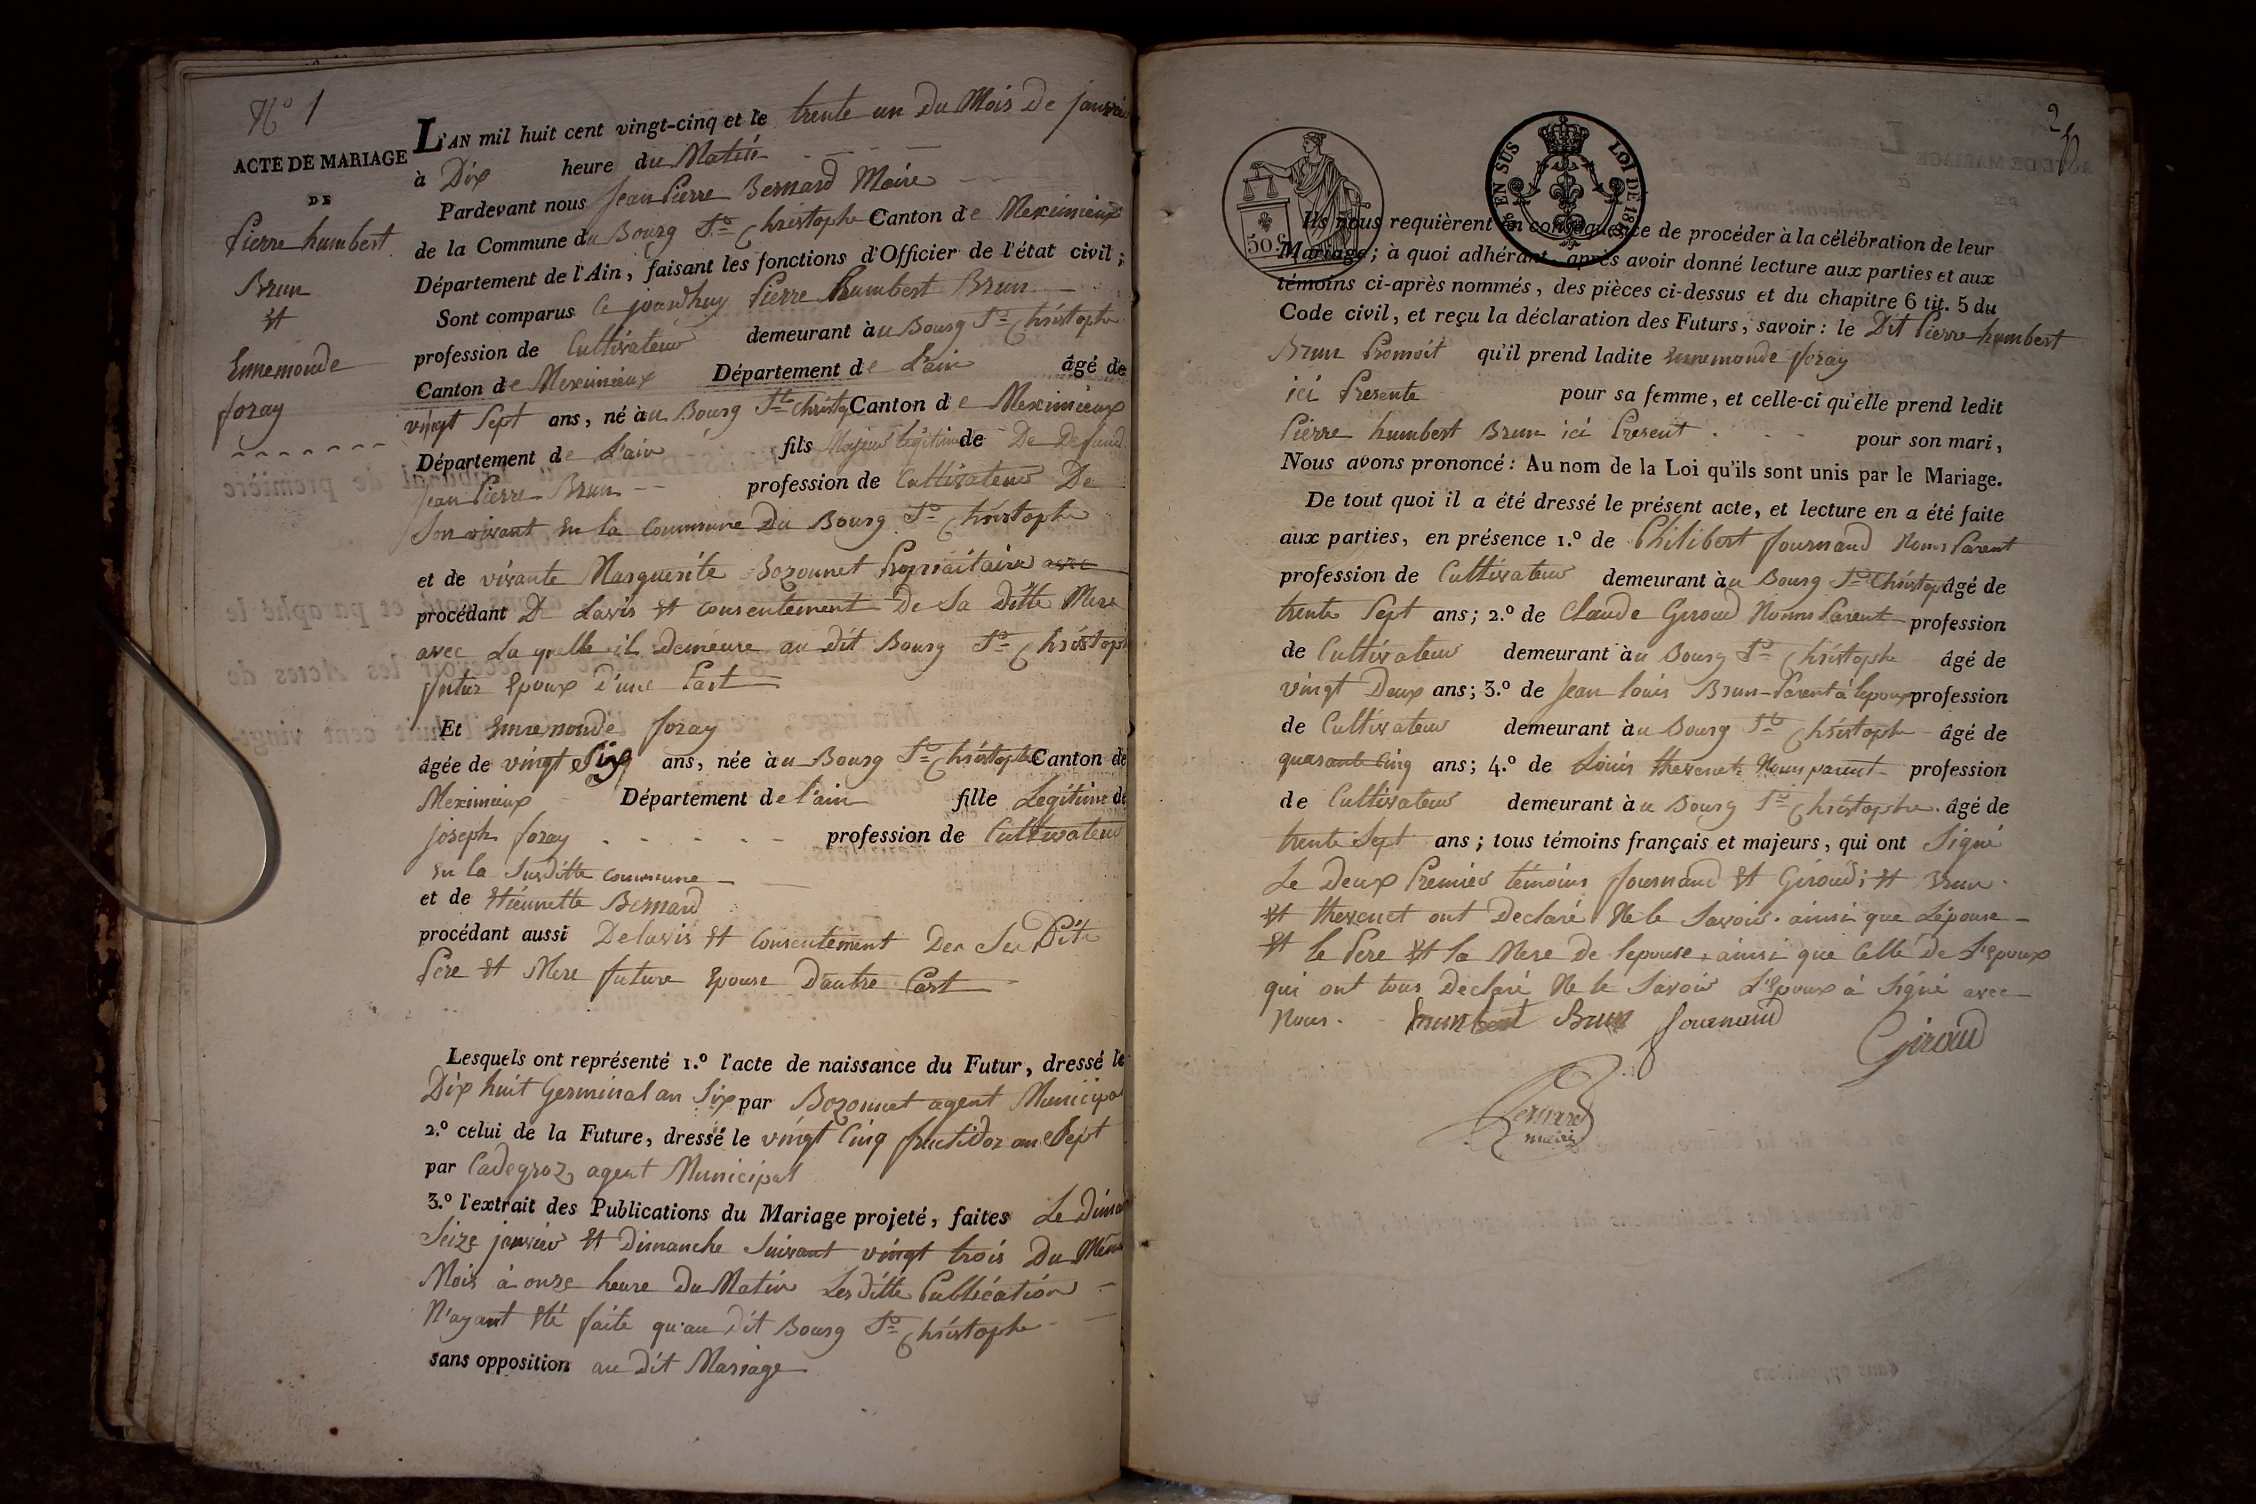 N° 1
ACTE DE MARIAGE
DE
Pierre humbert
Brun
Et
Ennemonde
foray
L'AN mil huit cent vingt-cinq et le trente un du Mois de janvier
à Dix heure du Matin
Pardevant nous Jean Pierre Bernard Maire
de la Commune du Bourg St Christophe Canton de Meximieux
Département de l'Ain, faisant les fonctions d'Officier de l'état civil;
Sont comparus Ce jourdhuy Pierre humbert Brun
profession de Cultivateur demeurant au Bourg St Christophe
Canton de Meximieux Département de L'ain âgé de
vingt Sept ans, né au Bourg St Christop Canton de Meximieux
Département de L'ain fils Majeur legitime de De Defunt
Jean Pierre Brun profession de Cultivateur De
Son vivant En la Commune Du Bourg St Christophe
et de vivante Marguerite Bozonnet Propriaitaire avec
procédant De Lavis Et consentement De Sa Ditte Mere
avec La quelle il Demeure au dit Bourg St Christoph
futur Epoux D'une Part
Et Ennemonde foray
âgée de vingt Six ans, née au Bourg St Christophe Canton de
Meximieux Département de l'ain fille Legitime de
joseph foray profession de Cultivateur
En la Susditte commune
et de Etiennette Bernard
procédant aussi Delavis Et Consentement Des Ses Dits
Pere Et Mere future Epouse D'autre Part
Lesquels ont représenté 1.° l'acte de naissance du Futur, dressé le
Dix huit Germinal an Six par Bozonnet agent Municipal
2.° celui de la Future, dressé le vingt Cinq fructidor an Sept
par Cadegroz agent Municipal
3.° l'extrait des Publications du Mariage projeté, faites Le Diman
Seize janvier Et Dimanche Suivant vingt trois Du Même
Mois à onze heure Du Matin Lesditte Publication
N'ayant Eté faite qu'au Dit Bourg St Christophe
sans opposition au Dit Mariage
2
50 c.
EN SUS LOI DE 18
Ils nous requièrent en conséquence de procéder à la célébration de leur
Mariage; à quoi adhérant, après avoir donné lecture aux parties et aux
témoins ci-après nommés, des pièces ci-dessus et du chapitre 6 tit. 5 du
Code civil, et reçu la déclaration des Futurs, savoir: le Dit Pierre humbert
Brun Promoit qu'il prend ladite Ennemonde foray
ici Presente pour sa femme, et celle-ci qu'elle prend ledit
Pierre humbert Brun ici Present pour son mari,
Nous avons prononcé: Au nom de la Loi qu'ils sont unis par le Mariage.
De tout quoi il a été dressé le présent acte, et lecture en a été faite
aux parties, en présence 1.° de Philibert fournand Noms Parent
profession de Cultivateur demeurant au Bourg St Christop âgé de
trente Sept ans; 2.° de Claude Giroud Nomis Parent profession
de Cultivateur demeurant au Bourg St Christophe âgé de
vingt Deux ans; 3.° de Jean Louis Brun Parent à lepoux profession
de Cultivateur demeurant au Bourg St Christophe âgé de
quarante Cinq ans; 4.° de Louis thevenet Nomi parent profession
de Cultivateur demeurant au Bourg St Christophe âgé de
trente Sept ans; tous témoins français et majeurs, qui ont Signé
Le Deux Premier témoins fournand Et Giroud; Et Brun
Et thevenet ont Declaré Ne le Savoir ainsi que Lépouse
Et le Pere Et la Mere de lepouse, ainsi que Celle De L'Epoux
qui ont tous Declaré Ne le Savoir L'Epoux à Signé avec
Nous. humbert Brun fournand
Giroud
Bernard
maire